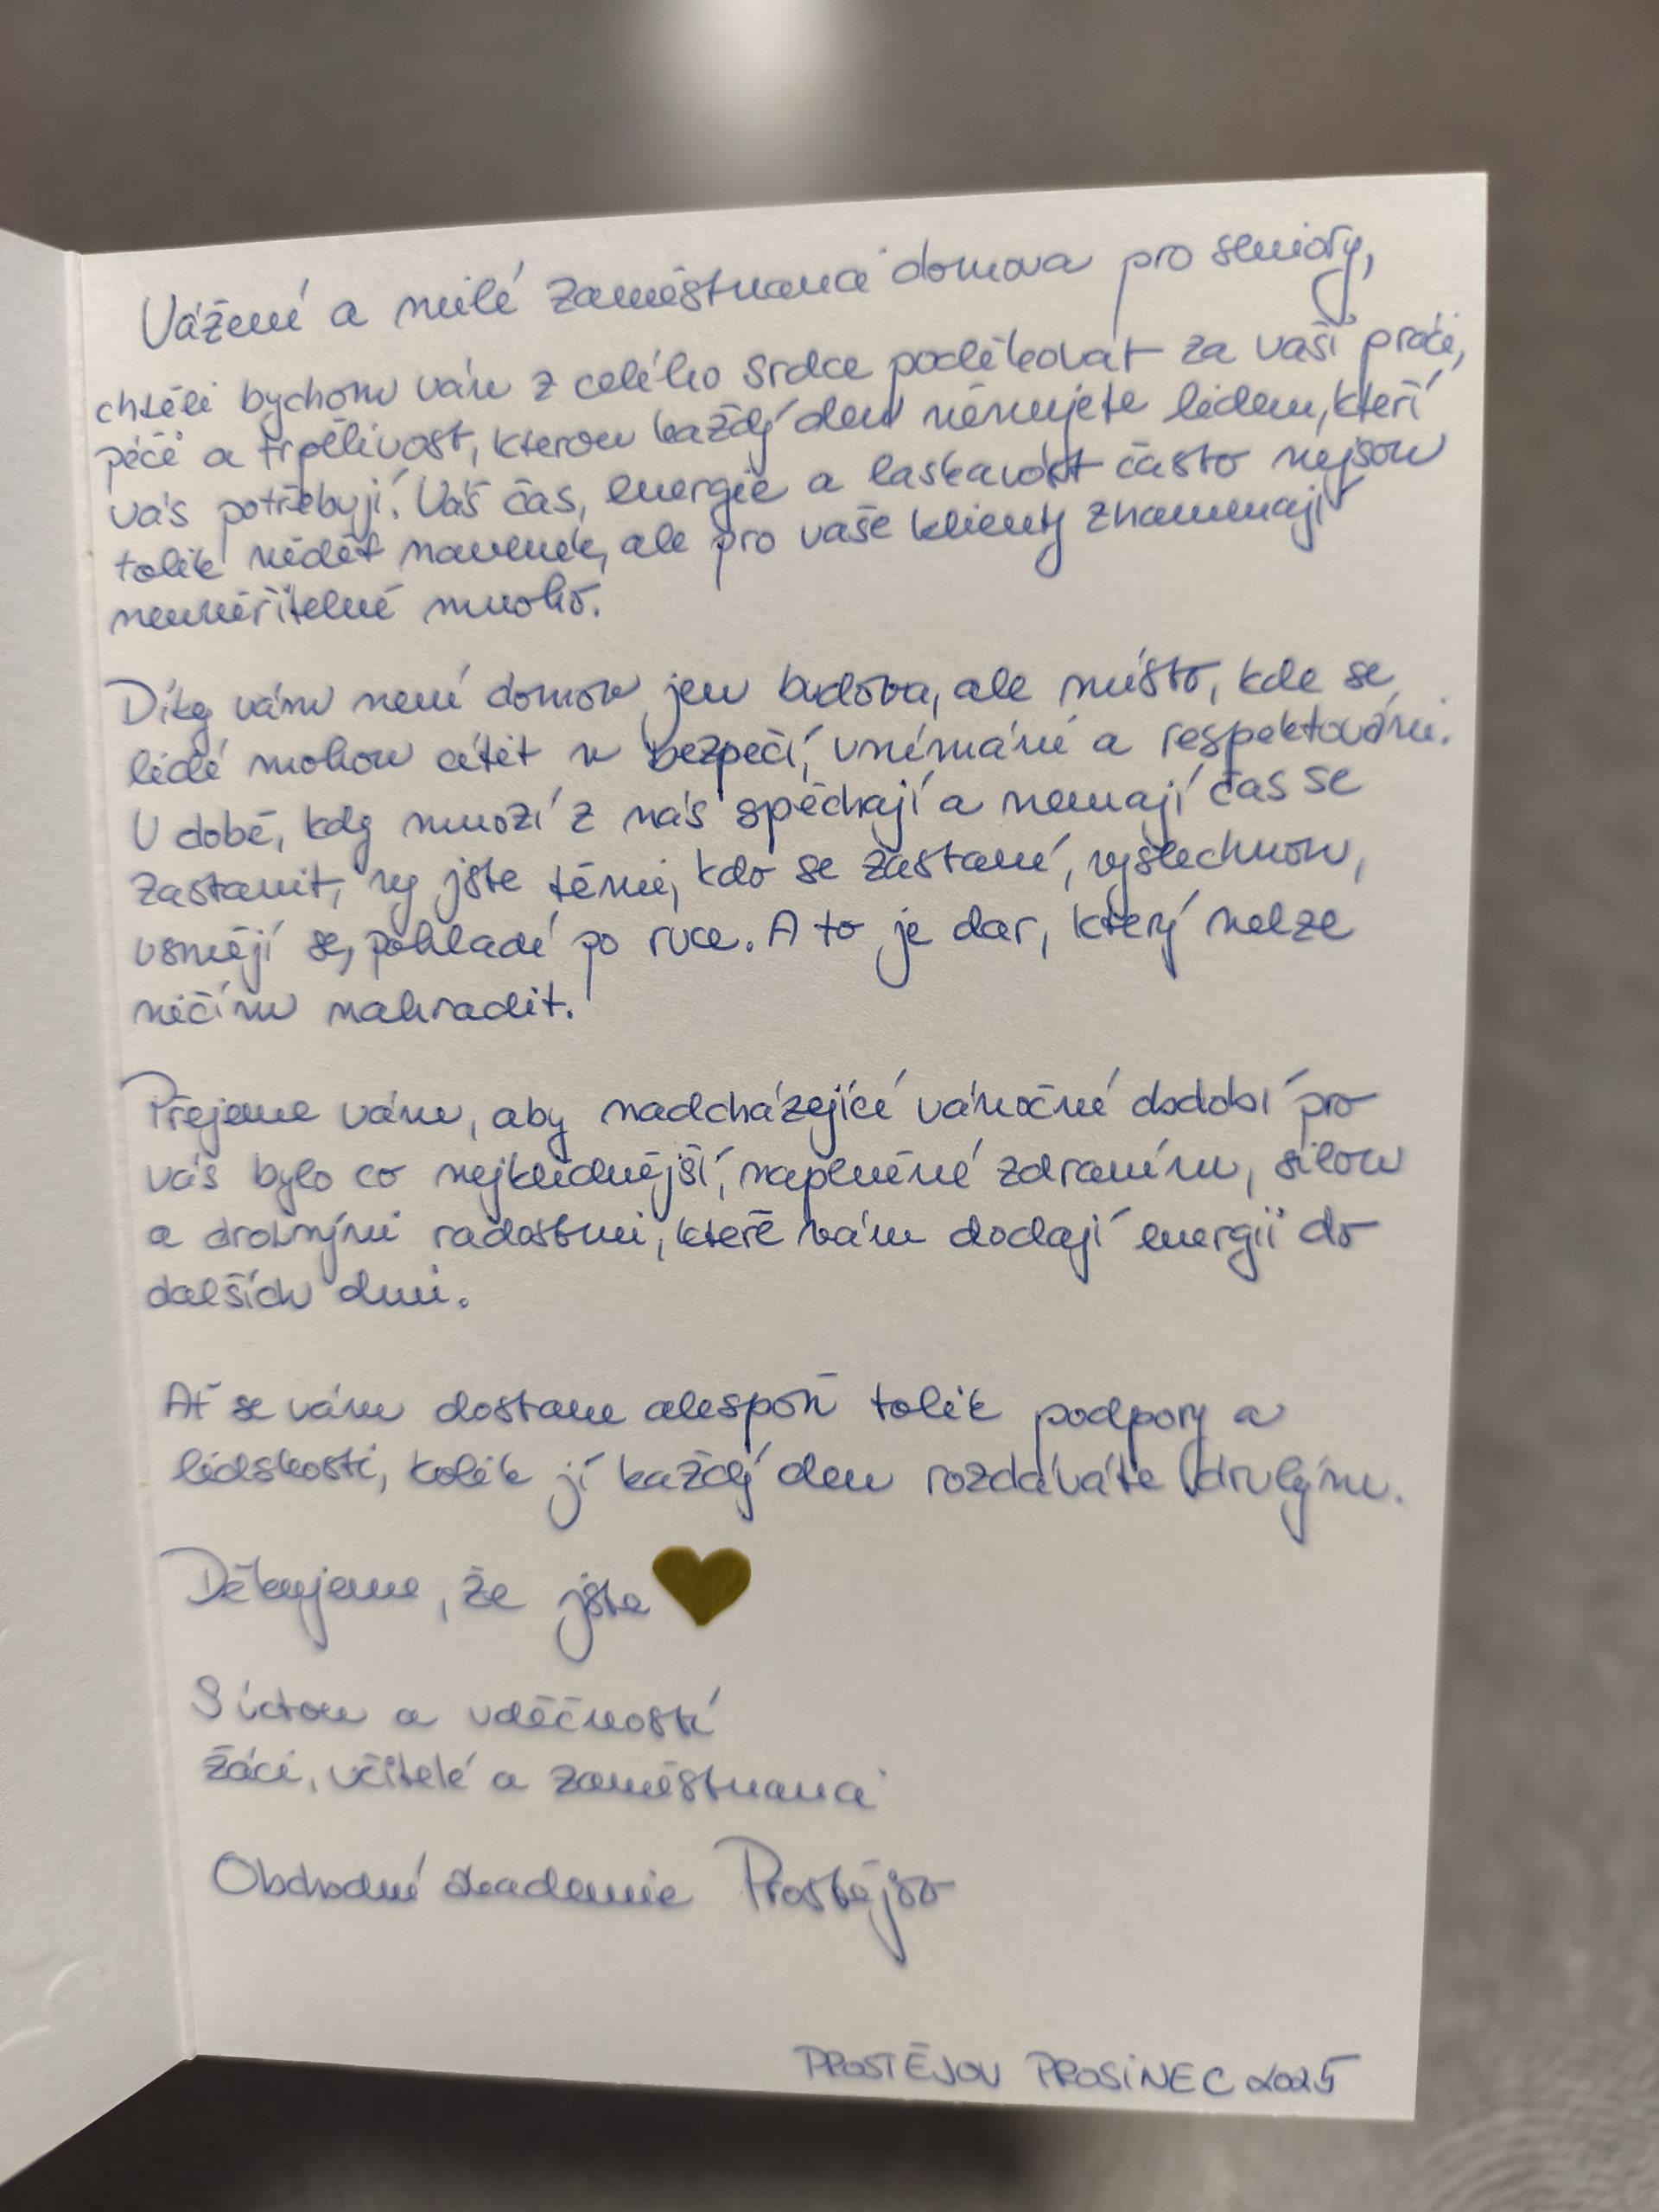 Vážení a milí zaměstnanci domova pro seniory,
chtěli bychom vám z celého srdce poděkovat za vaši práci,
péči a trpělivost, kterou každý den věnujete lidem, kteří
vás potřebují. Váš čas, energie a laskavost často nejsou
tolik vidět navenek, ale pro vaše klienty znamenají
neuvěřitelně mnoho.
Díky vám není domov jen budova, ale místo, kde se
lidé mohou cítit v bezpečí, vnímáni a respektováni.
V době, kdy mnozí z nás spěchají a nemají čas se
zastavit, vy jste těmi, kdo se zastaví, vyslechnou,
usmějí se, pohladí po ruce. A to je dar, který nelze
ničím nahradit.
Přejeme vám, aby nadcházející vánoční období pro
vás bylo co nejklidnější, naplněné zdravím, silou
a drobnými radostmi, které vám dodají energii do
dalších dní.
Ať se vám dostane alespoň tolik podpory a
lidskosti, kolik jí každý den rozdáváte druhým.
Děkujeme, že jste
S úctou a vděčností
žáci, učitelé a zaměstnanci
Obchodní akademie Prostějov
PROSTĚJOV PROSINEC 2025